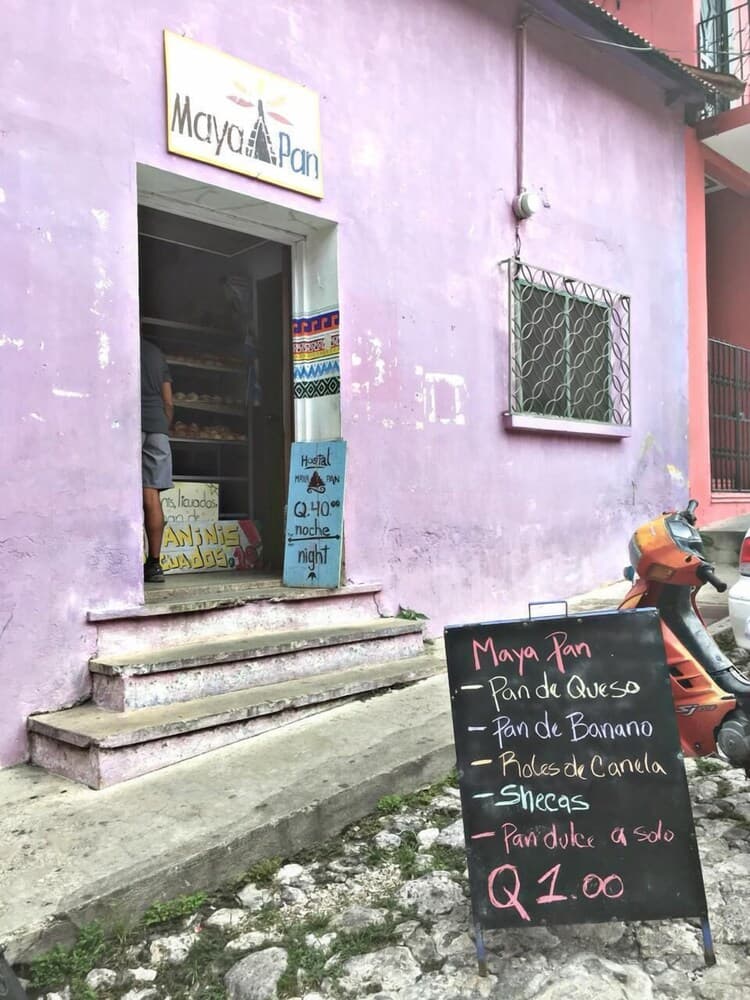 Maya Pan
Hostal
MAYA PAN
Q.40.00
noche
night
nis, licuados
PANINIS
CUADOS
Maya Pan
- Pan de Queso
- Pan de Banano
- Roles de Canela
- Shecas
- Pan dulce a solo
Q 1.00